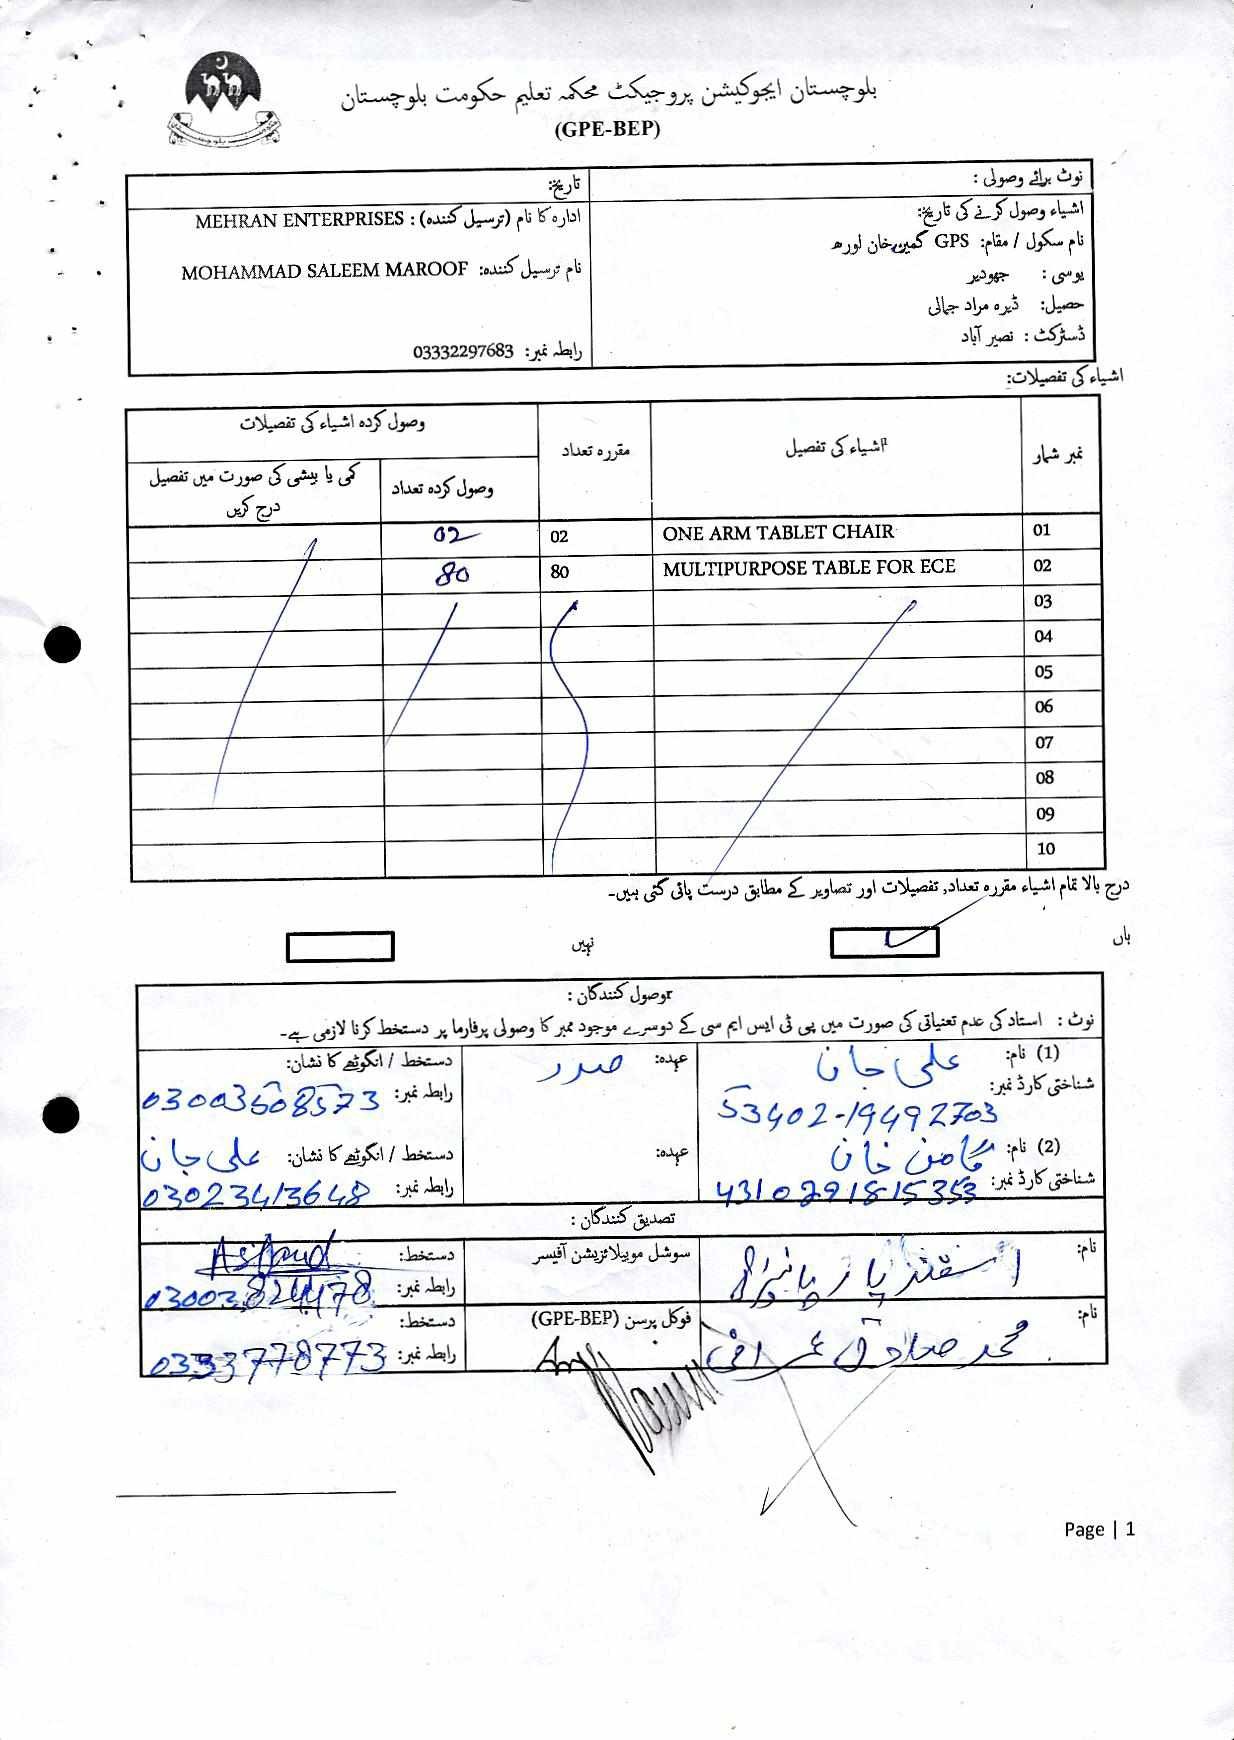 بلوچستان ایجوکیشن پروجیکٹ محکمہ تعلیم حکومت بلوچستان
(GPE-BEP)
نوٹ برائے وصولی :
اشیاء وصول کرنے کی تاریخ:
نام سکول / مقام: GPS خان لورھ
یوسی :
حصیل: ڈیرہ مراد جمالی
ڈسٹرکٹ : نصیر آباد
تاریخ:
ادارہ کا نام (ترسیل کنندہ) : MEHRAN ENTERPRISES
نام ترسیل کنندہ: MOHAMMAD SALEEM MAROOF
رابطہ نمبر: 03332297683
اشیاء کی تفصیلات:
نمبر شمار اشیاء کی تفصیل مقررہ تعداد وصول کردہ اشیاء کی تفصیلات
وصول کردہ تعداد کمی یا بیشی کی صورت میں تفصیل درج کریں
01 ONE ARM TABLET CHAIR 02 02
02 MULTIPURPOSE TABLE FOR ECE 80 80
03
04
05
06
07
08
09
10
درج بالا تمام اشیاء مقررہ تعداد, تفصیلات اور تصاویر کے مطابق درست پائی گئی ہیں۔
ہاں نہیں
وصول کنندگان :
نوٹ : استاد کی عدم تعنیاتی کی صورت میں پی ٹی ایس ایم سی کے دوسرے موجود ممبر کا وصولی پرفارما پر دستخط کرنا لازمی ہے۔
(1) نام: علی جان عہدہ: صدر دستخط / انگوٹھے کا نشان:
شناختی کارڈ نمبر: 53402-19492703 رابطہ نمبر: 03003608573
(2) نام: خان عہدہ: دستخط / انگوٹھے کا نشان: علی جان
شناختی کارڈ نمبر: 4310291815353 رابطہ نمبر: 03023413648
تصدیق کنندگان :
نام: اسفند یار سوشل موبیلائزیشن آفیسر دستخط:
رابطہ نمبر: 03003824478
نام: محمد صادق عمرانی فوکل پرسن (GPE-BEP) دستخط:
رابطہ نمبر: 0333778773
Page | 1